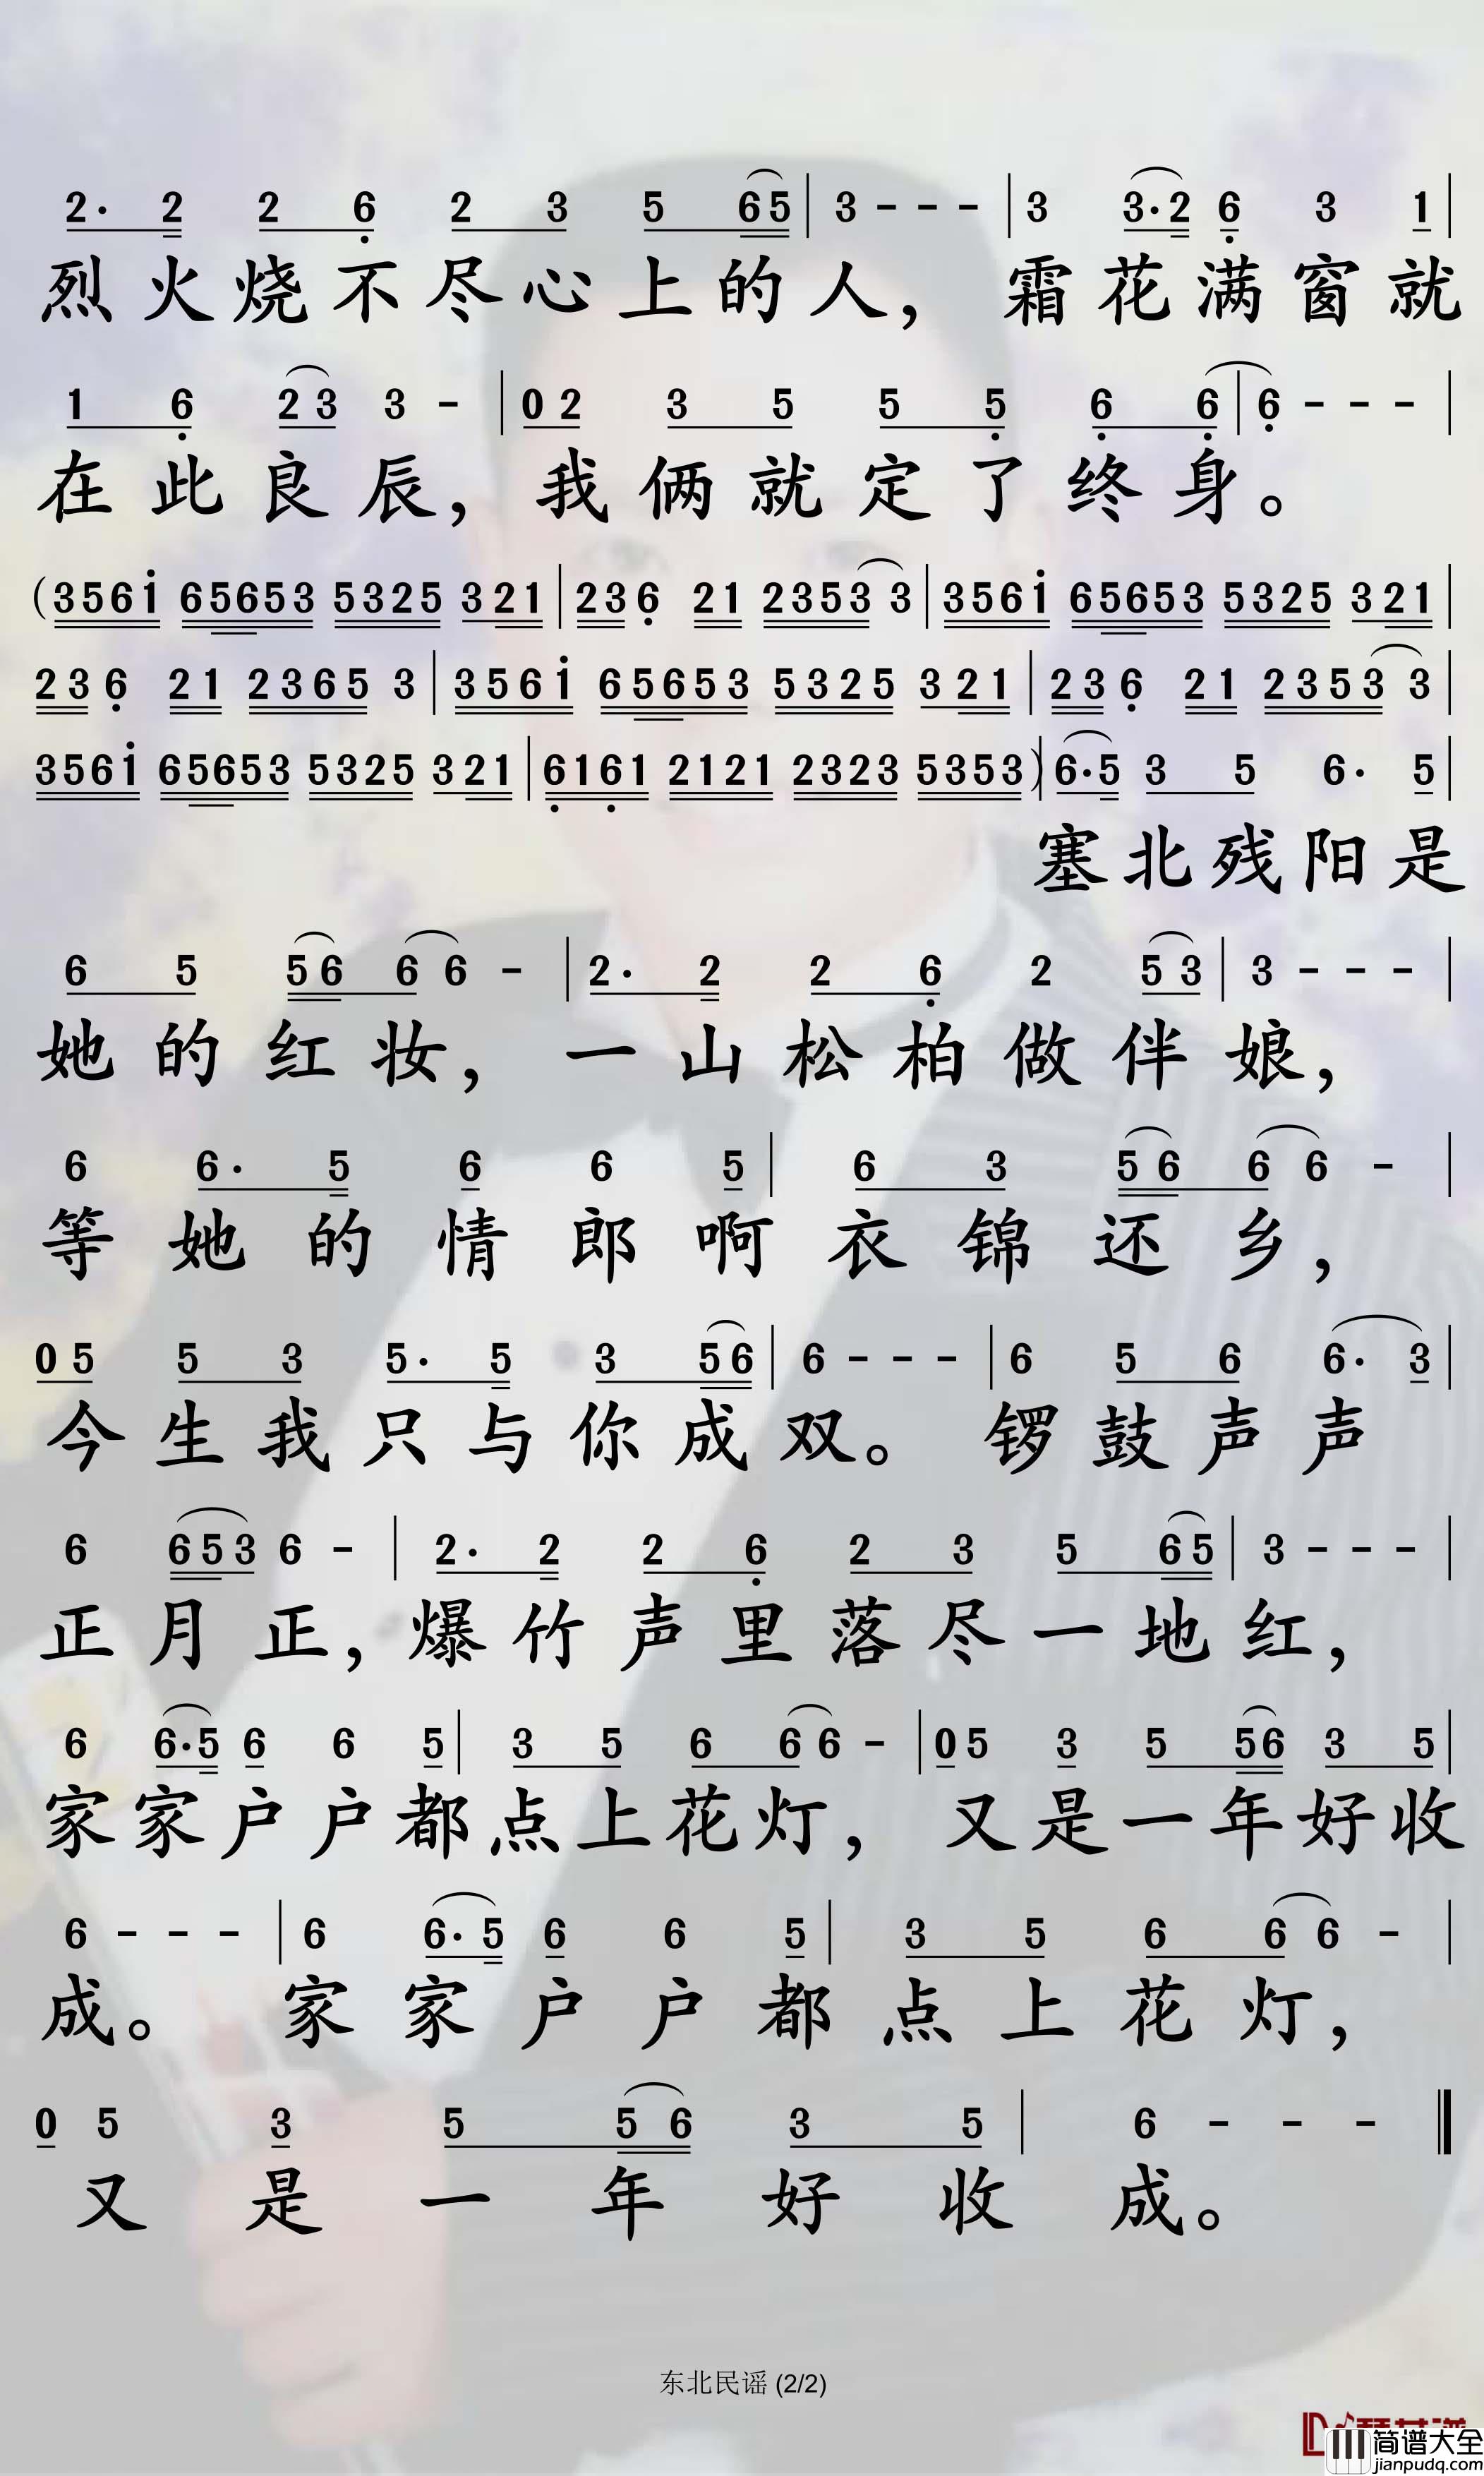 2· 2 2 6 2 3 5 65 | 3 - - - | 3 3·2 6 3 1 |
烈火烧不尽心上的人，霜花满窗就
1 6 23 3 - | 02 3 5 5 5 6 6 | 6 - - - |
在此良辰，我俩就定了终身。
(3561 65653 5325 321 | 236 21 2353 3 | 3561 65653 5325 321 |
236 21 2365 3 | 3561 65653 5325 321 | 236 21 2353 3 |
3561 65653 5325 321 | 6161 2121 2323 5353) | 6·5 3 5 6· 5 |
塞北残阳是
6 5 56 6 6 - | 2· 2 2 6 2 53 | 3 - - - |
她的红妆，一山松柏做伴娘，
6 6· 5 6 6 5 | 6 3 56 6 6 - |
等她的情郎啊衣锦还乡，
05 5 3 5· 5 3 56 | 6 - - - | 6 5 6 6· 3 |
今生我只与你成双。锣鼓声声
6 653 6 - | 2· 2 2 6 2 3 5 65 | 3 - - - |
正月正，爆竹声里落尽一地红，
6 6·5 6 6 5 | 3 5 6 6 6 - | 05 3 5 56 3 5 |
家家户户都点上花灯，又是一年好收
6 - - - | 6 6·5 6 6 5 | 3 5 6 6 6 - |
成。家家户户都点上花灯，
0 5 3 5 5 6 3 5 | 6 - - - ‖
又是一年好收成。
东北民谣 (2/2)
简谱大全
jianpudq.com